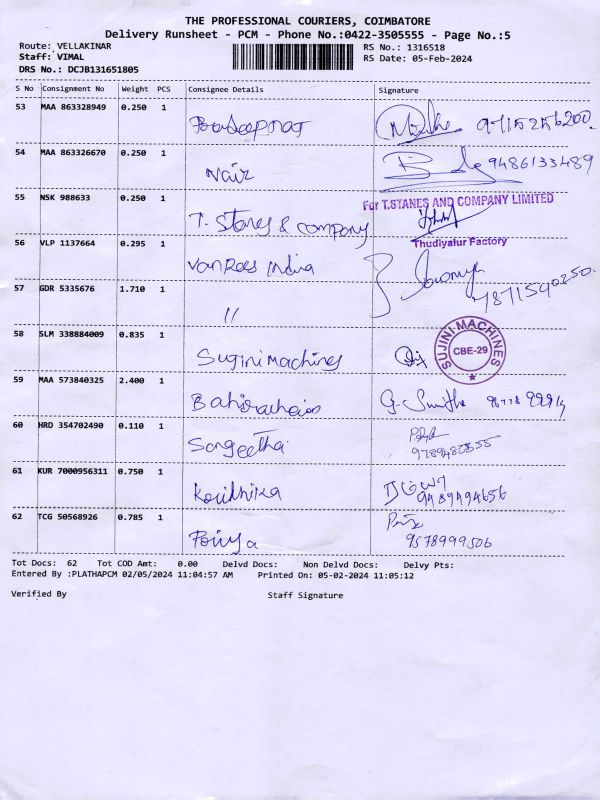 THE PROFESSIONAL COURIERS, COIMBATORE
Delivery Runsheet - PCM - Phone No.:0422-3505555 - Page No.:5
Route: VELLAKINAR
Staff: VIMAL
DRS No.: DCJB131651805
RS No.: 1316518
RS Date: 05-Feb-2024
S No Consignment No Weight PCS Consignee Details Signature
53 MAA 863328949 0.250 1
54 MAA 863326670 0.250 1 Nair 9486133489
55 NSK 988633 0.250 1 T. Stanes & company For T.STANES AND COMPANY LIMITED
Thudiyalur Factory
56 VLP 1137664 0.295 1 VanRees India
57 GDR 5335676 1.710 1 //
58 SLM 338884009 0.835 1 Sugini machines SUJINI MACHINES CBE-29
59 MAA 573840325 2.400 1
60 HRD 354702490 0.110 1 Sangeetha
61 KUR 7000956311 0.750 1 9489494656
62 TCG 50568926 0.785 1 9578999506
Tot Docs: 62 Tot COD Amt: 0.00 Delvd Docs: Non Delvd Docs: Delvy Pts:
Entered By :PLATHAPCM 02/05/2024 11:04:57 AM Printed On: 05-02-2024 11:05:12
Verified By Staff Signature